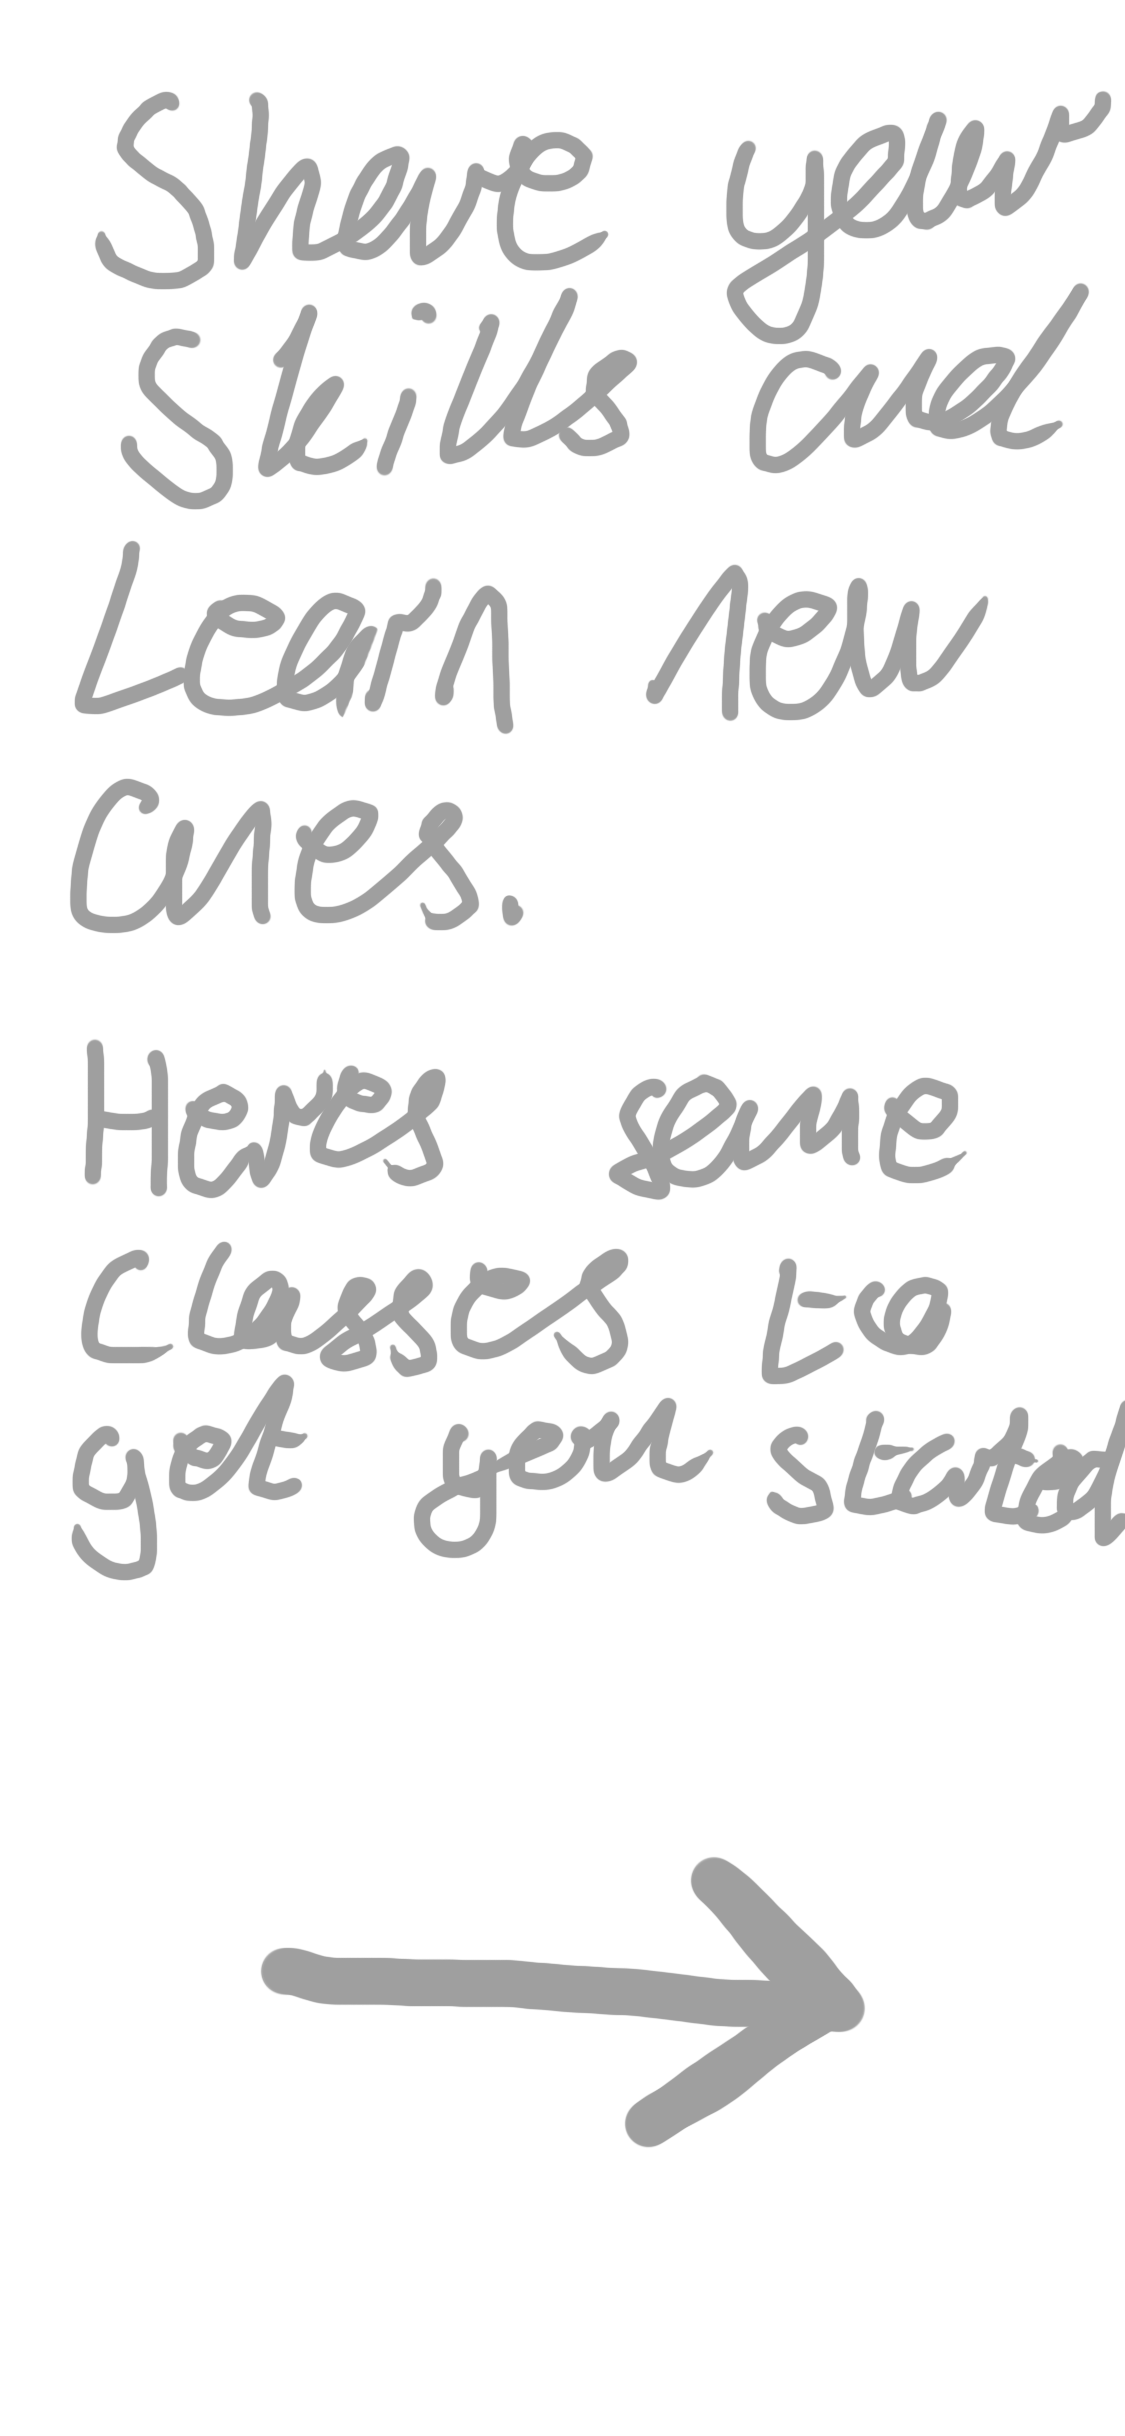 Share your
Skills and
Learn new
Ones.
Heres some
Classes to
get you started